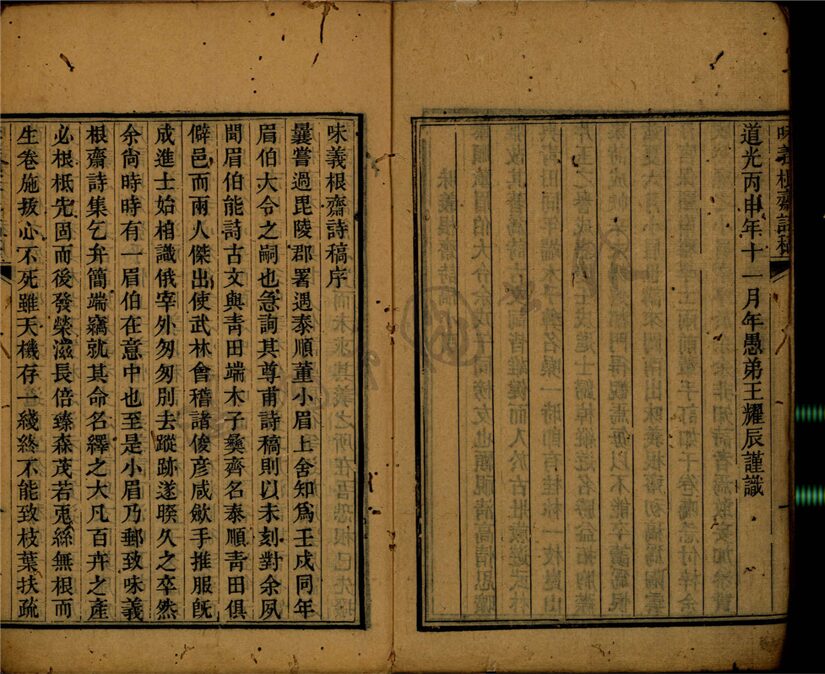 味義根齋詩稿
道光丙申年十一月年愚弟王耀辰謹識
味義根齋詩稿序
曩嘗過毘陵郡署遇泰順董小眉上舍知爲壬戌同年
眉伯大令之嗣也急詢其尊甫詩稿則以未刻對余夙
聞眉伯能詩古文與青田端木子彝齊名泰順青田俱
僻邑而兩人傑出使武林會稽諸俊彥咸斂手推服旣
成進士始相識俄宰外匆匆別去蹤跡遂暌久之卒然
余尙時時有一眉伯在意中也至是小眉乃郵致味義
根齋詩集乞弁簡端竊就其命名繹之大凡百卉之產
必根柢先固而後發榮滋長倍臻森茂若兎絲無根而
生卷施拔心不死雖天機存一綫終不能致枝葉扶疏